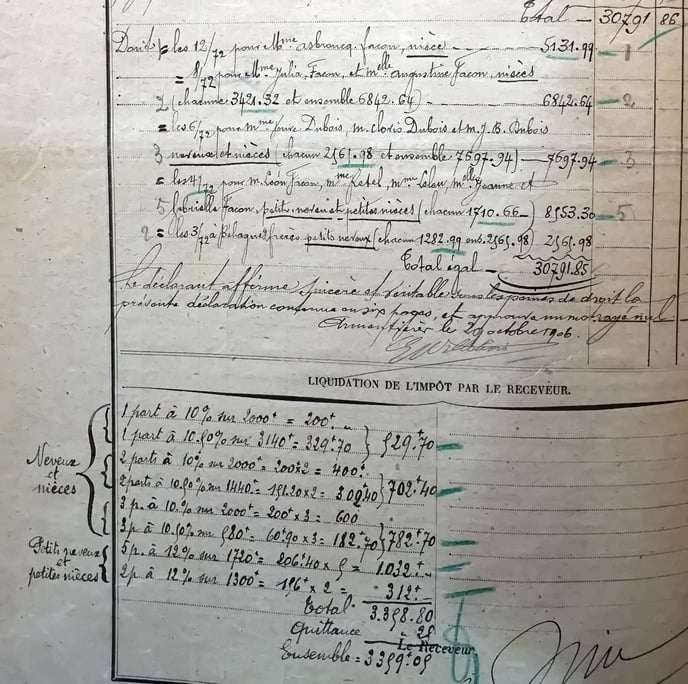 Total — 30791 86
Dont = les 12/72 pour Mme Asbrancq Facon, nièce — 5131.99 — 1
= 8/72 pour Mme Julia Facon, et Melle Augustine Facon, nièces
2 (chacune 3421.32 et ensemble 6842.64) — 6842.64 — 2
= les 6/72 pour Mme Dubois, M. Cloris Dubois et M. J. B. Dubois
3 neveux et nièces (chacun 2561.98 et ensemble 7697.94) — 7697.94 — 3
= les 4/72 pour M. Léon Facon, Mme Ketel, Mme Leleu, Melle Jeanne et
5 Gabrielle Facon, petit neveu et petites nièces (chacun 1710.66 — ) 8553.30 — 5
2 = les 3/72 à frères petits neveux (chacun 1282.99 ens. 2565.98) 2565.98
Total égal — 30791.85
Le déclarant affirme sincère et véritable sous les peines de droit la
présente déclaration contenue en six pages, et approuve un mot rayé nul
Armentières le 29 octobre 1906.
LIQUIDATION DE L'IMPÔT PAR LE RECEVEUR.
Neveux et nièces
1 part à 10% sur 2000f = 200f. „
1 part à 10.50% sur 3140f = 329f.70 } 529f.70
2 parts à 10% sur 2000f = 200f x 2 = 400f.
2 parts à 10.50% sur 1440f = 151.20 x 2 = 302f40 } 702f.40
3 p. à 10% sur 2000f = 200f x 3 = 600
3 p. à 10.50% sur 580f = 60f90 x 3 = 182f.70 } 782f.70
Petits neveux et petites nièces
5 p. à 12% sur 1720f = 206f.40 x 5 = 1.032f. „
2 p. à 12% sur 1300f = 156f x 2 = 312f. „
Total - 3.358.80
Quittance „ 25
Le Receveur,
Ensemble = 3359f05